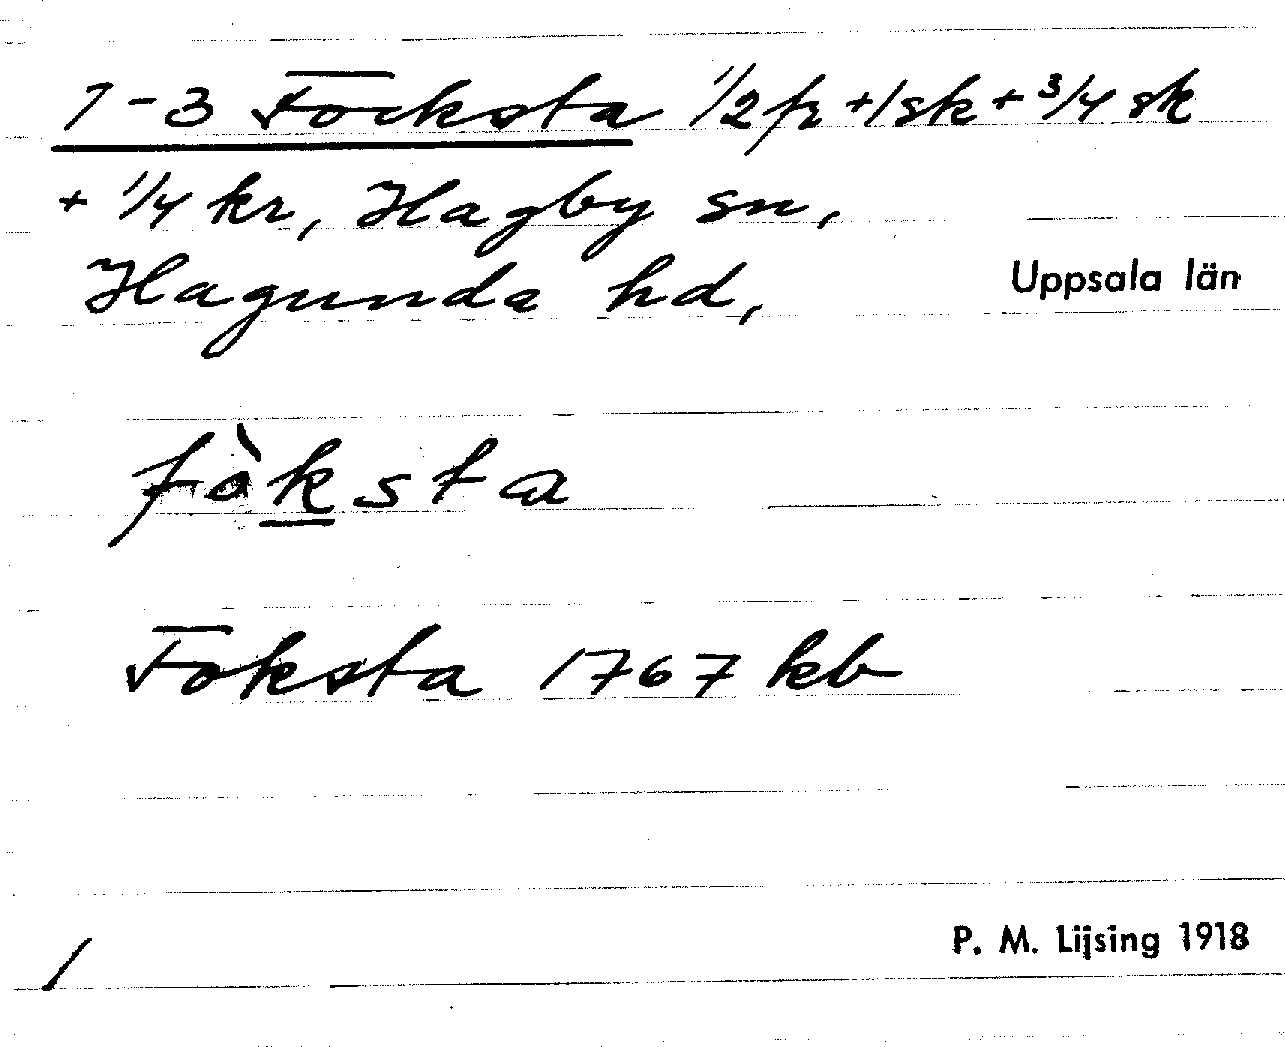 1-3 Focksta 1/2 fr + 1 sk + 3/4 sk
+ 1/4 kr, Hagby sn,
Hagunda hd, Uppsala län
fòksta
Foksta 1767 kb
P. M. Lijsing 1918
/